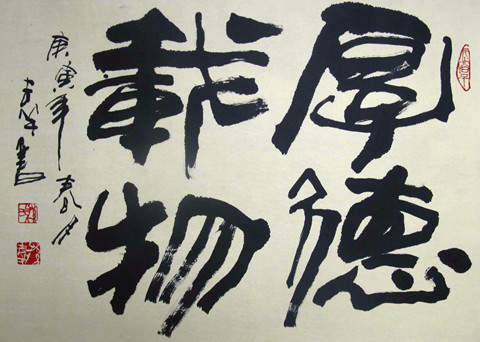 厚德
載物
庚寅年春月
書